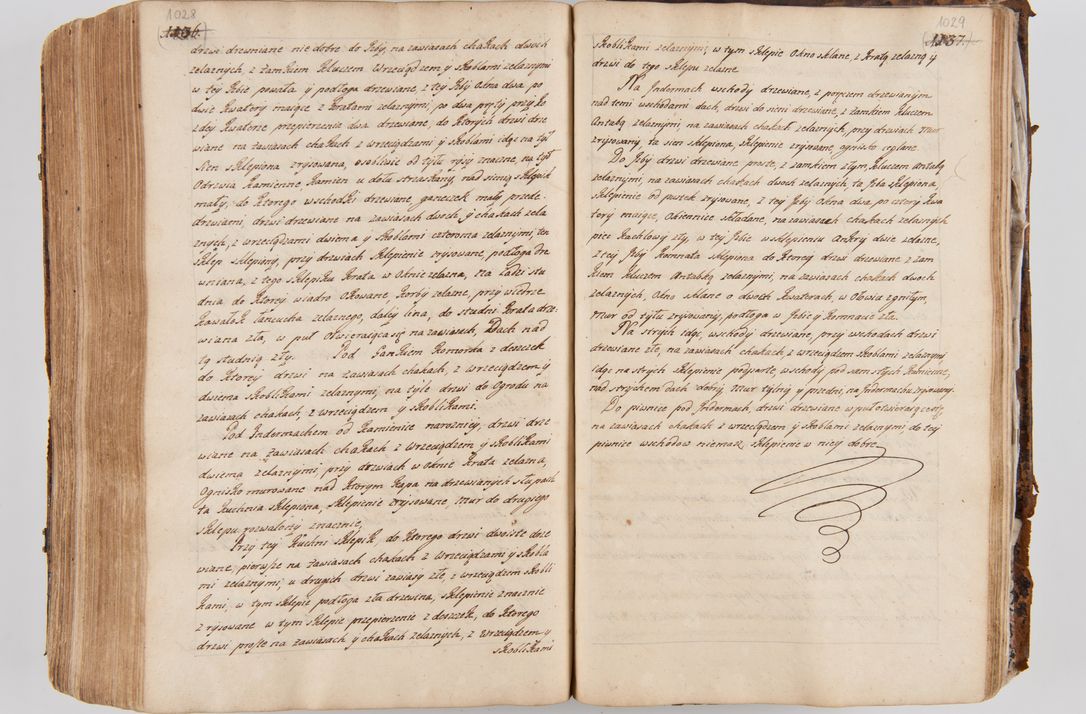 1028
1136.
drzwi drzewiane nie dobre do Izby, na zawiasach chakach dwoch
zelaznych, z Zamkiem Kluczem Wrzeciądzem, y skoblami zelaznymi
w tey Izbie powała y podłoga drzewiane, z tey Izby Okna dwa po
dwie Kwatery maiące z Kratami zelaznymi, po dwa pręty przy ko
zdey Kwaterze przepierzenia dwa drzewiane, do Ktorych drzwi drze
wiane na zawiasach chakach z wrzeciądzami y skoblami idąc na tył
Sien sklepiona zrysowana, osobliwie od tyłu rysy znaczne, na tył
Odrzwia Kamienne, Kamien u dołu strzaskany, nad sienią sklepik
mały, do Ktorego wschodki drzewiane, ganeczek mały przede
drzwiami, drzwi drzewiane na zawiasach dwoch, y chakach zela
znych, z wrzeciądzami dwiema y skoblami czterema zelaznymi, ten
Sklep sklepiony, przy drzwiach Sklepienie zrysowane, podłoga dre
wniana, z tego Sklepiku Krata w Oknie zelazna, na zadzi stu
dnia do Ktorey wiadro Okowane, Korby zelazne, przy wiedrze
Kawałek łancucha zelaznego, daley lina, do studni Krata drze
wiana zła, w puł Otwieraiąca się na zawiasach, Dach nad
tą studnią zły. Pod Gankiem Komorka z deszczek
do Ktorey drzwi na zawiasach chakach, z wrzeciądzem y
dwiema skoblikami zelaznymi, na tyle drzwi do Ogrodu na
zawiasach chakach, z wrzeciądzem y skoblikami.
Pod Indermachem od Kamienice narozniey, drzwi drze
wiane na zawiasach chakach z Wrzeciądzem y skoblikami
dwiema zelaznymi, przy drzwiach w Oknie Krata zelazna,
Ognisko murowane nad Ktorym Kapa na drzewianych słupach
ta Kuchnia sklepiona, Sklepienie zrysowane, Mur do drugiego
Sklepu rozwalony znacznie,
Przy tey Kuchni sklepik, do Ktorego drzwi dwoiste drze
wiane, pierwsze na zawiasach chakach z Wrzeciądzami y skobla
mi zelaznymi, u drugich drzwi zawiasy złe, z wrzeciądzem skobli
kami, w tym sklepie podłoga zła drzewina, sklepienie znacznie
zrysowane w tym sklepie przepierzenie z deszczek, do Ktorego
drzwi proste na zawiasach y chakach zelaznych, z Wrzeciądzem y
skoblikami
1029
1137.
skoblikami zelaznymi, w tym sklepie Okno sklane, z Kratą zelazną y
drzwi do tego sklepu zelazne
Na Indermach wschody drzewiane, z poręczem drzewianym
nad temi wschodami dach, drzwi do sieni drzewiane, z zamkiem kluczem
Antabą zelaznymi, na zawiasach chakach zelaznych, przy drzwiach mur
zrysowany, ta sien sklepiona, sklepienie zrysowane, ognisko ceglane.
Do Izby drzwi drzewiane proste, z zamkiem złym, kluczem antabą
zelaznymi, na zawiasach chakach dwoch zelaznych, ta Izba sklepiona,
sklepienie od puszek zrysowane, z tey Izby Okna dwa po cztery kwa
tery maiące, Okiennice składane, na zawiasach chakach zelaznych
piec kachlowy zły, w tey Izbie w sklepieniu Ankry dwie zelazne,
z tey Izby Komnata sklepiona do Ktorey drzwi drzewiane z zam
kiem kluczem Antabką zelaznymi, na zawiasach chakach dwoch
zelaznych, Okno sklane o dwoch Kwaterach, w Ołowia zgniłym,
mur od tyłu zrysowany, podłoga w Izbie y Komnacie złe.
Na strych idąc, wschody drzewiane, przy wschodach drzwi
drzewiane złe, na zawiasach chakach, z wrzeciądzem skoblami zelaznymi
idąc na strych sklepienie podparte, wschody pod sam strych kamienne,
nad strychem dach dobry, mur tylny y przedni, na Indermachu zrysowany.
Do piwnice pod Indermach, drzwi drzewiane w puł otwieraiące się
na zawiasach chakach z wrzeciądzem y skoblami zelaznymi do tey
piwnice wschodow niemasz, sklepienie w niey dobre